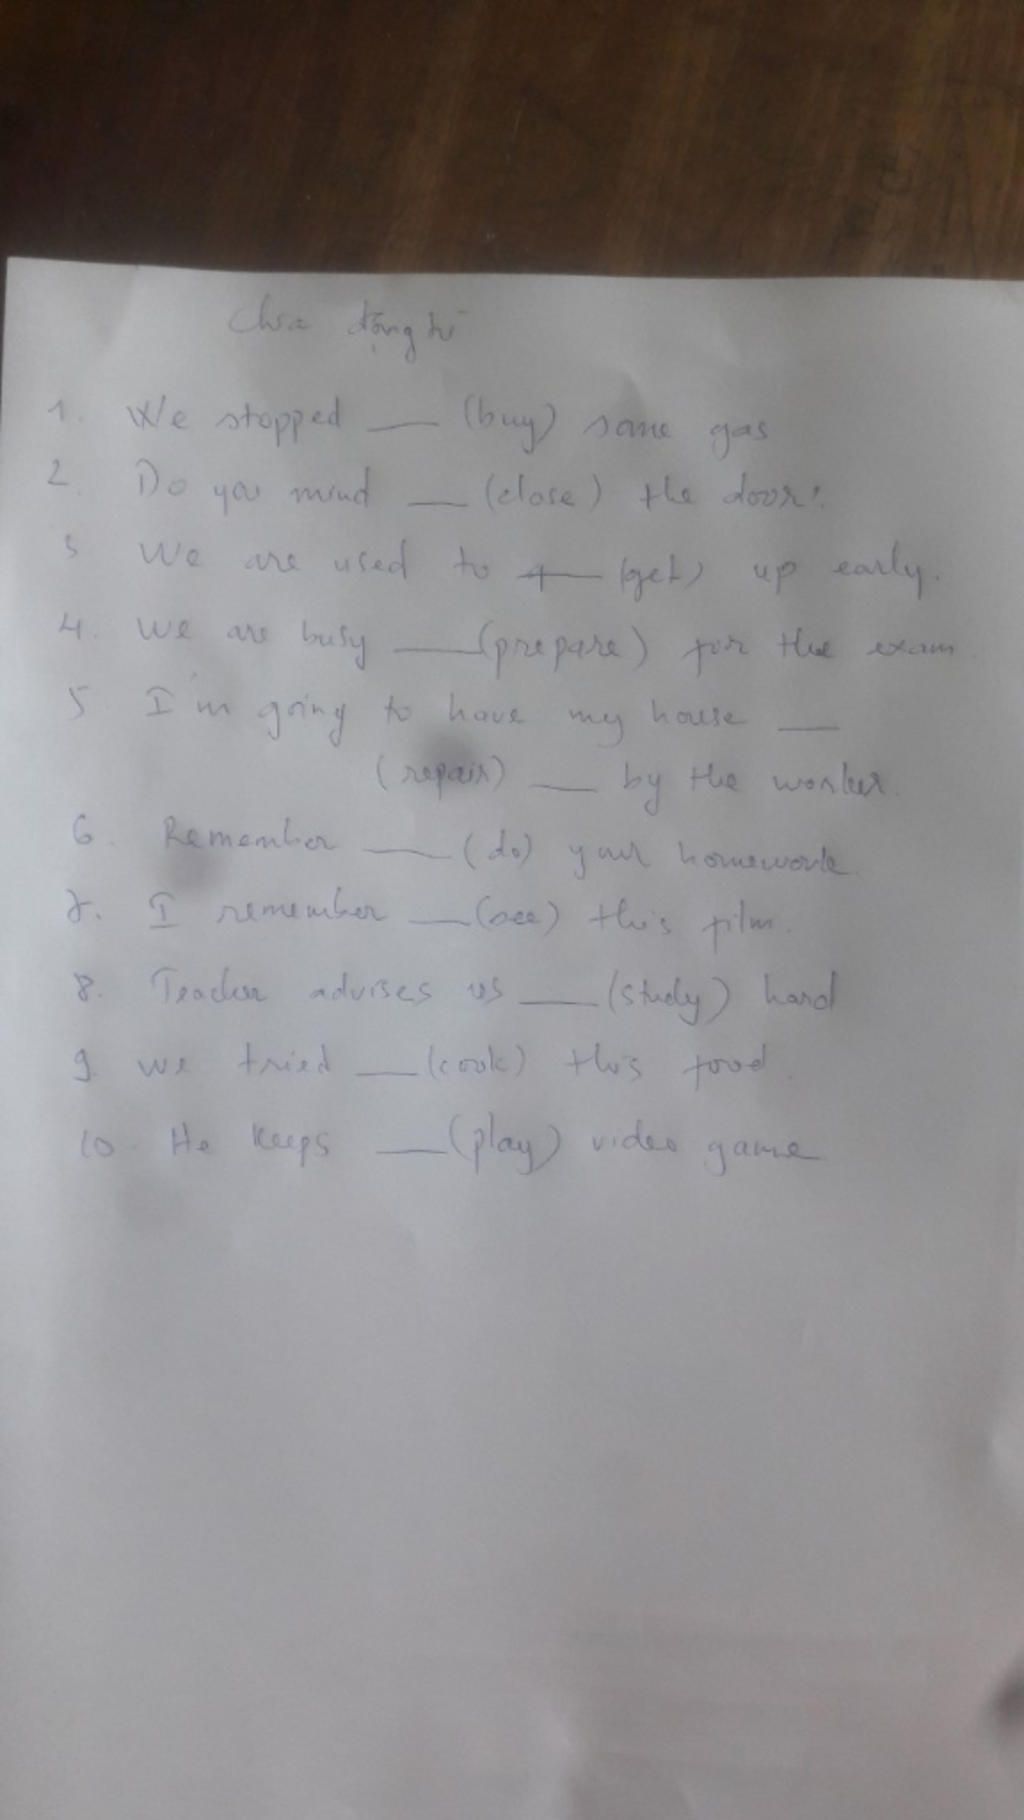 Chia động từ
1. We stopped ___ (buy) some gas
2. Do you mind ___ (close) the door?
3 We are used to ___ (get) up early.
4. We are busy ___ (prepare) for the exam.
5 I'm going to have my house ___
(repair) ___ by the worker.
6. Remember ___ (do) your homework.
7. I remember ___ (see) this film.
8. Teacher advises us ___ (study) hard
9 we tried ___ (cook) this food.
10. He keeps ___ (play) video game